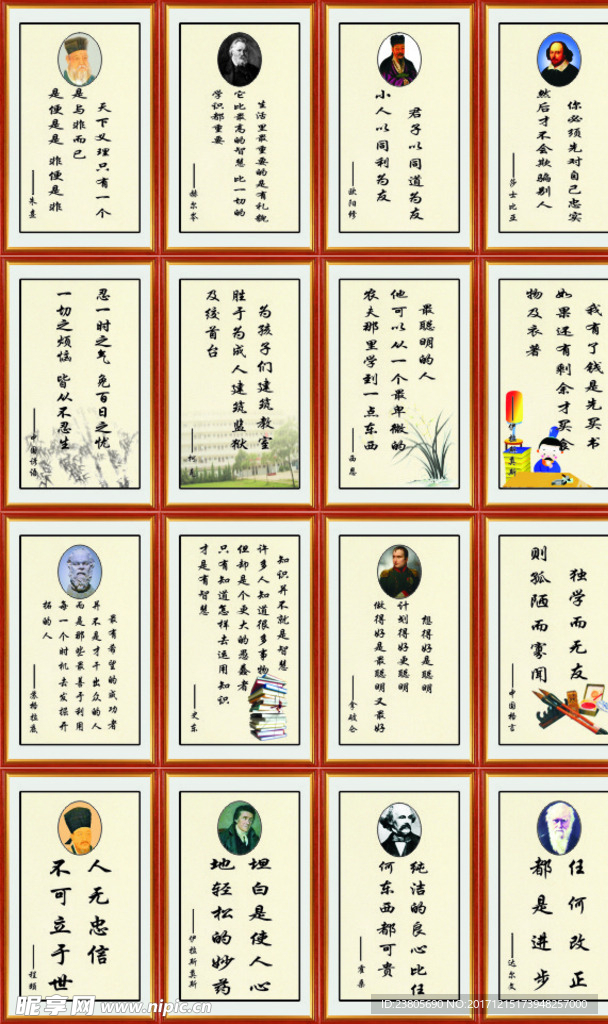 天下义理只有一个
是与非而已
是便是是 非便是非
——朱熹
生活里最重要的是有礼貌
它比最高的智慧 比一切的
学识都重要
——赫尔岑
君子以同道为友
小人以同利为友
——欧阳修
你必须先对自己忠实
然后才不会欺骗别人
——莎士比亚
忍一时之气 免百日之忧
一切之烦恼 皆从不忍生
——中国谚语
为孩子们建筑教室
胜于为成人建筑监狱
及绞首台
最聪明的人
他可以从一个最卑微的
农夫那里学到一点东西
——西思
我有了钱是先买书
如果还有剩余才买食
物及衣著
——伊拉斯莫斯
最有希望的成功者
并不是才干出众的人
而是那些最善于利用
每一个时机去发掘开
拓的人
——苏格拉底
知识并不就是智慧
许多人知道很多事物
但却是个更大的愚蠢者
只有知道怎样去运用知识
才是有智慧
——史东
想得好是聪明
计划得好更聪明
做得好是最聪明又最好
——拿破仑
独学而无友
则孤陋而寡闻
——中国格言
人无忠信
不可立于世
——程颐
坦白是使人心
地轻松的妙药
——伊拉斯莫斯
纯洁的良心比任
何东西都可贵
——霍桑
任何改正
都是进步
——达尔文
昵享网 www.nipic.cn
ID:23805690 NO:20171215173948257000